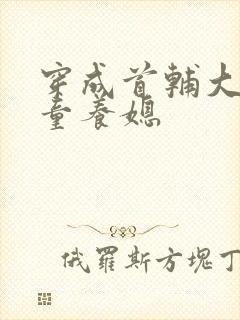 穿成首輔大
童養媳
俄羅斯方塊丁